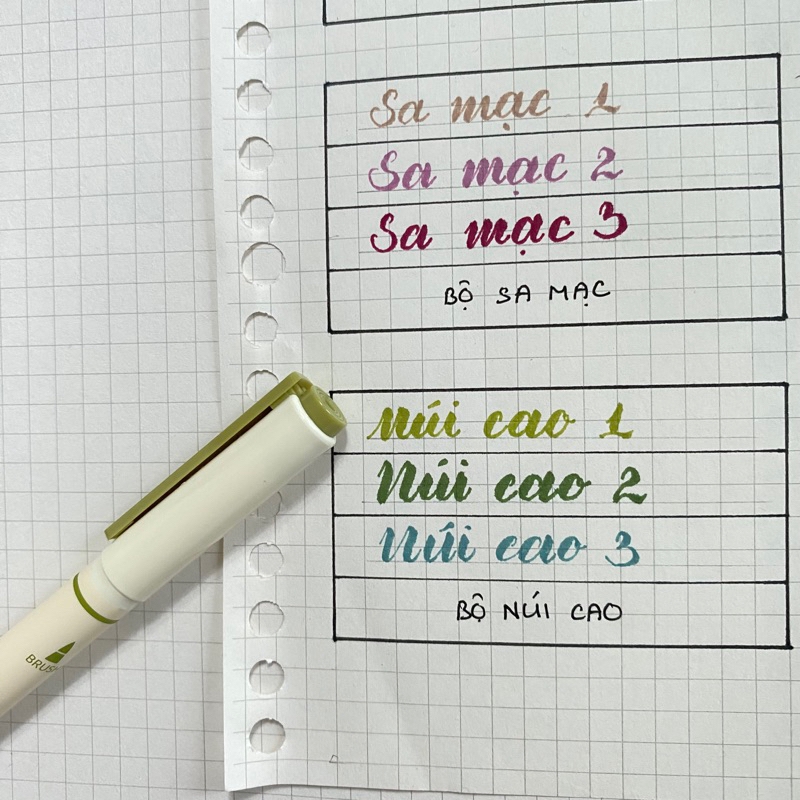 Sa mạc 1
Sa mạc 2
Sa mạc 3
BỘ SA MẠC
Núi cao 1
Núi cao 2
Núi cao 3
BỘ NÚI CAO
BRUSH